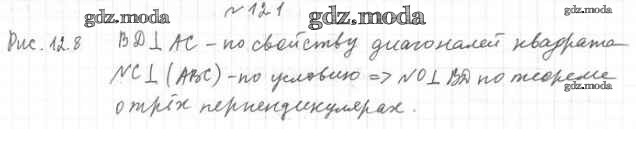 № 121
gdz.moda gdz.moda gdz.moda
Рис. 12.8 BD⊥AC – по свойству диагоналей квадрата
NC⊥(ABC) – по условию => NO⊥BD по теореме
gdz.moda
о трёх перпендикулярах.
gdz.moda